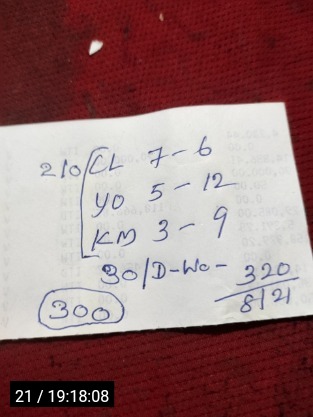 210 CL 7-6
YO 5-12
KM 3-9
30/D-Wo- 320
300 8/21
21 / 19:18:08